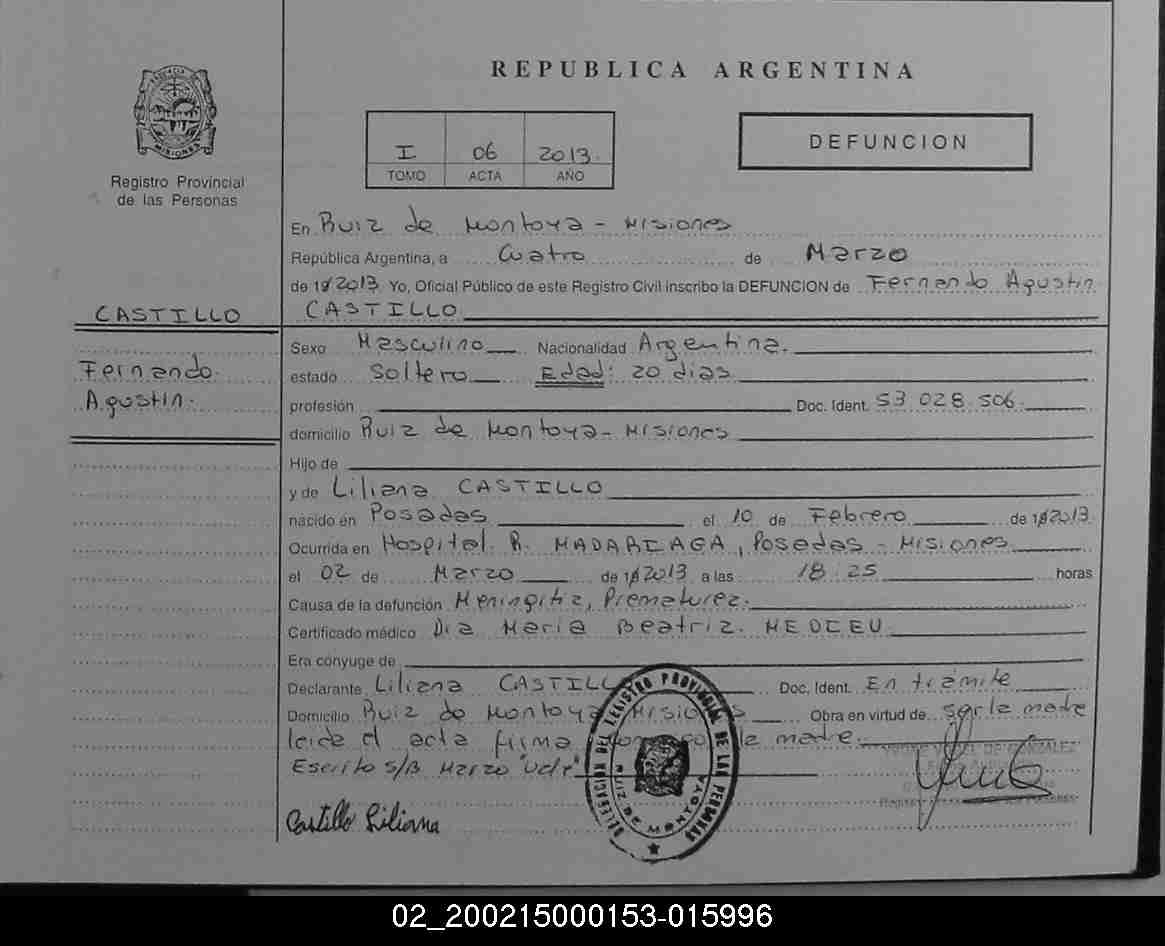 REPUBLICA ARGENTINA
PROVINCIA DE MISIONES
Registro Provincial
de las Personas
I 06 2013
TOMO ACTA AÑO
DEFUNCION
En Ruiz de Montoya - Misiones
República Argentina, a Cuatro de Marzo
de 19 2013 Yo, Oficial Público de este Registro Civil inscribo la DEFUNCION de Fernando Agustin
CASTILLO
CASTILLO
Fernando
Agustin.
Sexo Masculino Nacionalidad Argentina.
estado Soltero Edad: 20 dias
profesión Doc. Ident. 53 028 506.
domicilio Ruiz de Montoya - Misiones
Hijo de
y de Liliana CASTILLO
nacido en Posadas el 10 de Febrero de 19 2013
Ocurrida en Hospital. R. MADARIAGA, Posadas - Misiones
el 02 de Marzo de 19 2013 a las 18:25 horas
Causa de la defunción Meningitis, Prematurez.
Certificado médico Dra Maria Beatriz.
Era cónyuge de
Declarante Liliana CASTILL Doc. Ident. En trámite
Domicilio Ruiz de Montoya Misiones Obra en virtud de ser la madre
leida el acta firma la madre.
Escrito S/B Marzo "Vale"
Castillo Liliana
DELEGACION DEL REGISTRO PROVINCIAL DE LAS PERSONAS
RUIZ DE MONTOYA
DE GONZALEZ
02_200215000153-015996